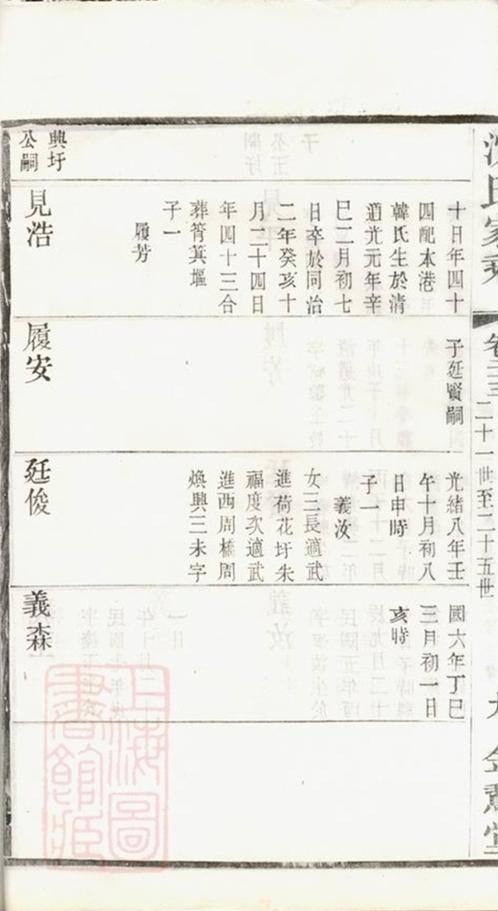 沈氏家乘
二十一世至二十五世
十日年四十
四配本港
韓氏生於清
道光元年辛
巳二月初七
日卒於同治
二年癸亥十
月二十四日
年四十三合
葬筲萁堰
子一
履芳
興圩
公嗣
見浩
子廷賢嗣
履安
光緒八年壬
午十月初八
日申時
子一
義汝
女三長適武
進荷花圩朱
福度次適武
進西周橋周
煥興三未字
廷俊
國六年丁巳
三月初一日
亥時
義森
上海圖
書館藏